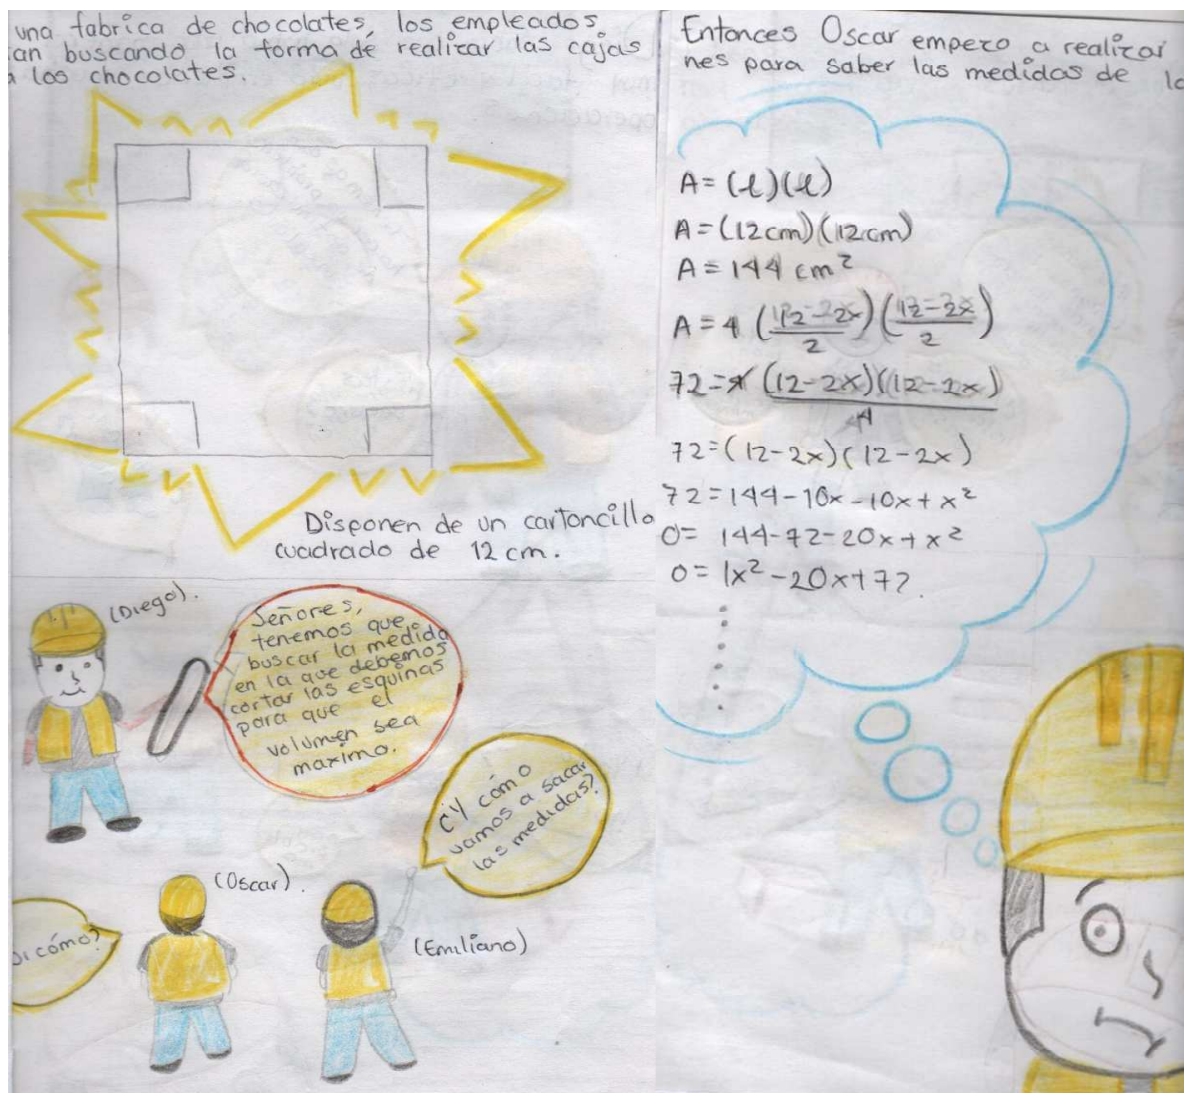 una fabrica de chocolates, los empleados
an buscando la forma de realizar las cajas
a los chocolates.
Disponen de un cartoncillo
cuadrado de 12 cm.
(Diego).
Señores,
tenemos que
buscar la medida
en la que debemos
cortar las esquinas
para que el
volumen sea
maximo.
¿Y cómo
vamos a sacar
las medidas?
(Oscar).
(Emiliano)
cómo?
Entonces Oscar empezo a realizar
nes para saber las medidas de
A = (l)(l)
A = (12cm)(12cm)
A = 144 cm²
A = 4 ((12-2x)/2)((12-2x)/2)
72 = 4 (12-2x)(12-2x)/4
72 = (12-2x)(12-2x)
72 = 144-10x-10x+x²
0 = 144-72-20x+x²
0 = 1x²-20x+72.